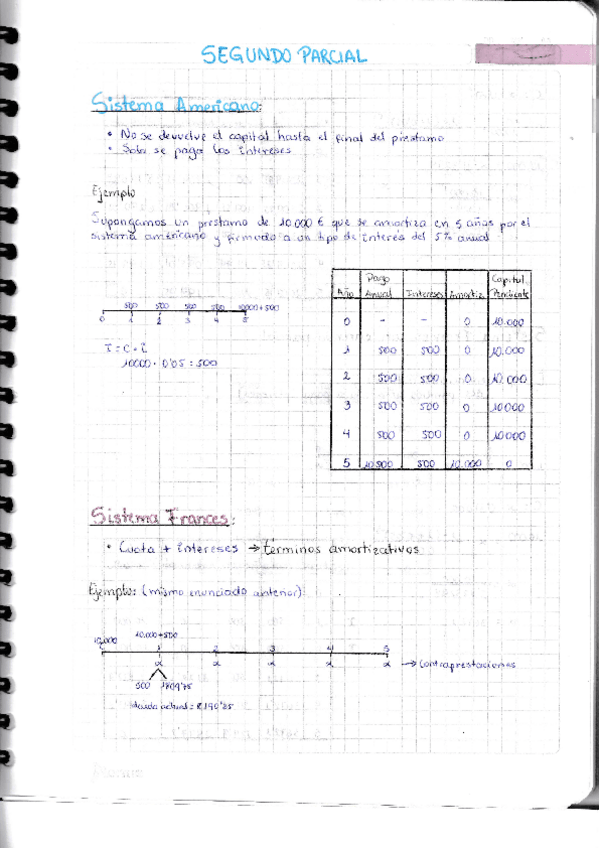 SEGUNDO PARCIAL
Sistema Americano:
• No se devuelve el capital hasta el final del prestamo
• Solo se paga los intereses
Ejemplo
Supongamos un prestamo de 10.000 € que se amortiza en 5 años por el
sistema américano y firmado a un tipo de interés del 5% anual
500 500 500 500 10000 + 500
0 1 2 3 4 5
I = C · i
10000 · 0'05 = 500
Año Pago Anual Intereses Amortiz Capital Pendiente
0 - - 0 10.000
1 500 500 0 10.000
2 500 500 0 10.000
3 500 500 0 10000
4 500 500 0 10000
5 10.500 500 10.000 0
Sistema Frances:
• Cuota + intereses → términos amortizativos
Ejemplo: (mismo enunciado anterior)
10.000 10.000+500
1 2 3 4 5
α α α α α → Contraprestaciones
500 1809'75
deuda actual = 8190'25